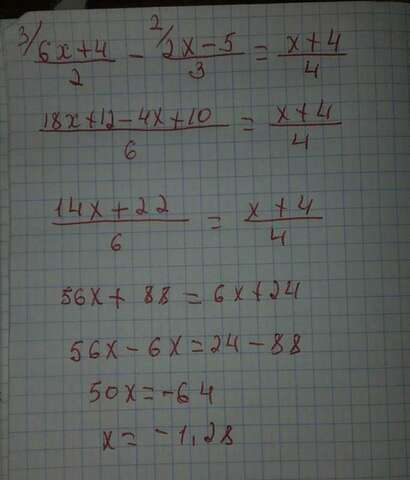 3/ (6x+4)/2 - 2/ (2x-5)/3 = (x+4)/4
(18x+12-4x+10)/6 = (x+4)/4
(14x+22)/6 = (x+4)/4
56x+88=6x+24
56x-6x=24-88
50x=-64
x=-1,28